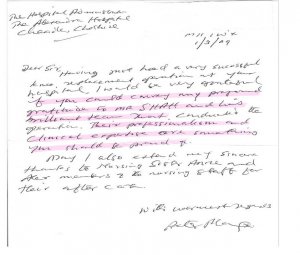 The Hospital Administrator
The Alexandra Hospital
Cheadle Cheshire
1/3/09
Dear Sir,
Having just had a very successful
knee replacement operation at your
hospital, I would be very grateful
if you could convey my profound
gratitude to MR SHAH and his
brilliant team that conducted the
operation. Their professionalism and
clinical expertise are something
you should be proud of.
May I also extend my sincere
thanks to Nursing Sister and
her members of nursing staff for
their after care.
With warmest regards
Peter